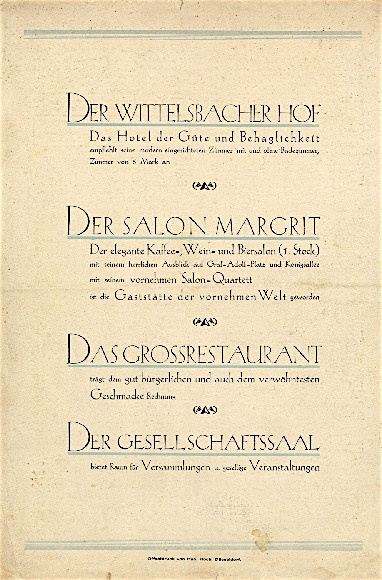 DER WITTELSBACHER HOF
Das Hotel der Güte und Behaglichkeit
empfiehlt seine modern eingerichteten Zimmer mit und ohne Badezimmer,
Zimmer von 5 Mark an
DER SALON MARGRIT
Der elegante Kaffee-, Wein- und Biersalon (1. Stock)
mit seinem herrlichen Ausblick auf Graf-Adolf-Platz und Königsallee
mit seinem vornehmen Salon-Quartett
ist die Gaststätte der vornehmen Welt geworden
DAS GROSSRESTAURANT
trägt dem gut bürgerlichen und auch dem verwöhntesten
Geschmacke Rechnung
DER GESELLSCHAFTSSAAL
bietet Raum für Versammlungen u. gesellige Veranstaltungen
Offsetdruck von Düsseldorf